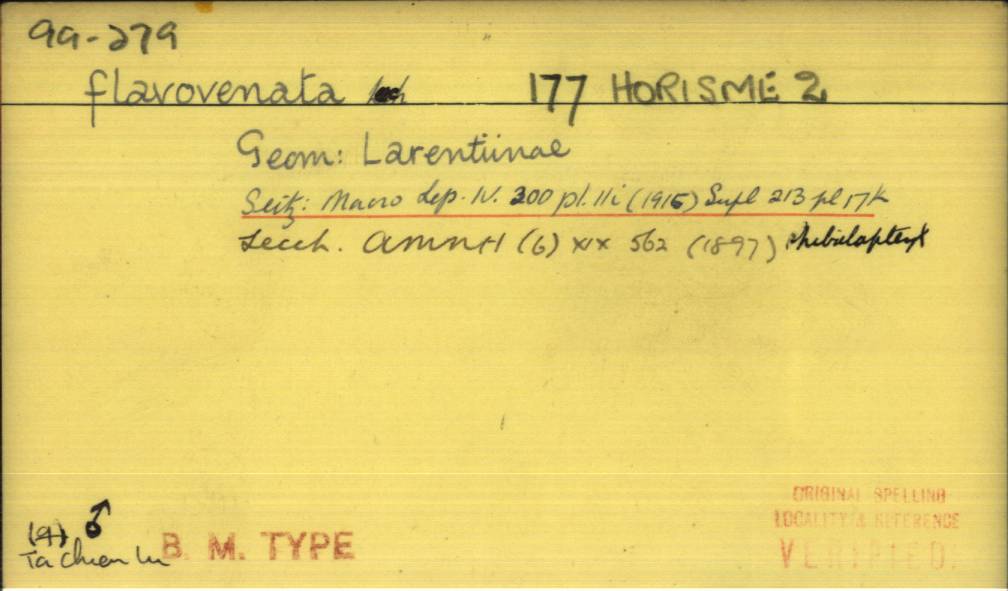 99-279
flavovenata Leech 177 HORISME 2
Geom: Larentiinae
Seitz: Macro Lep. IV. 200 pl. 11i (1915) Supl 213 pl 17k
Leech. AMNH (6) XIX 562 (1897) Phibalapteryx
(9) ♂
Ta chien lu
B. M. TYPE
ORIGINAL SPELLING
LOCALITY & REFERENCE
VERIFIED.